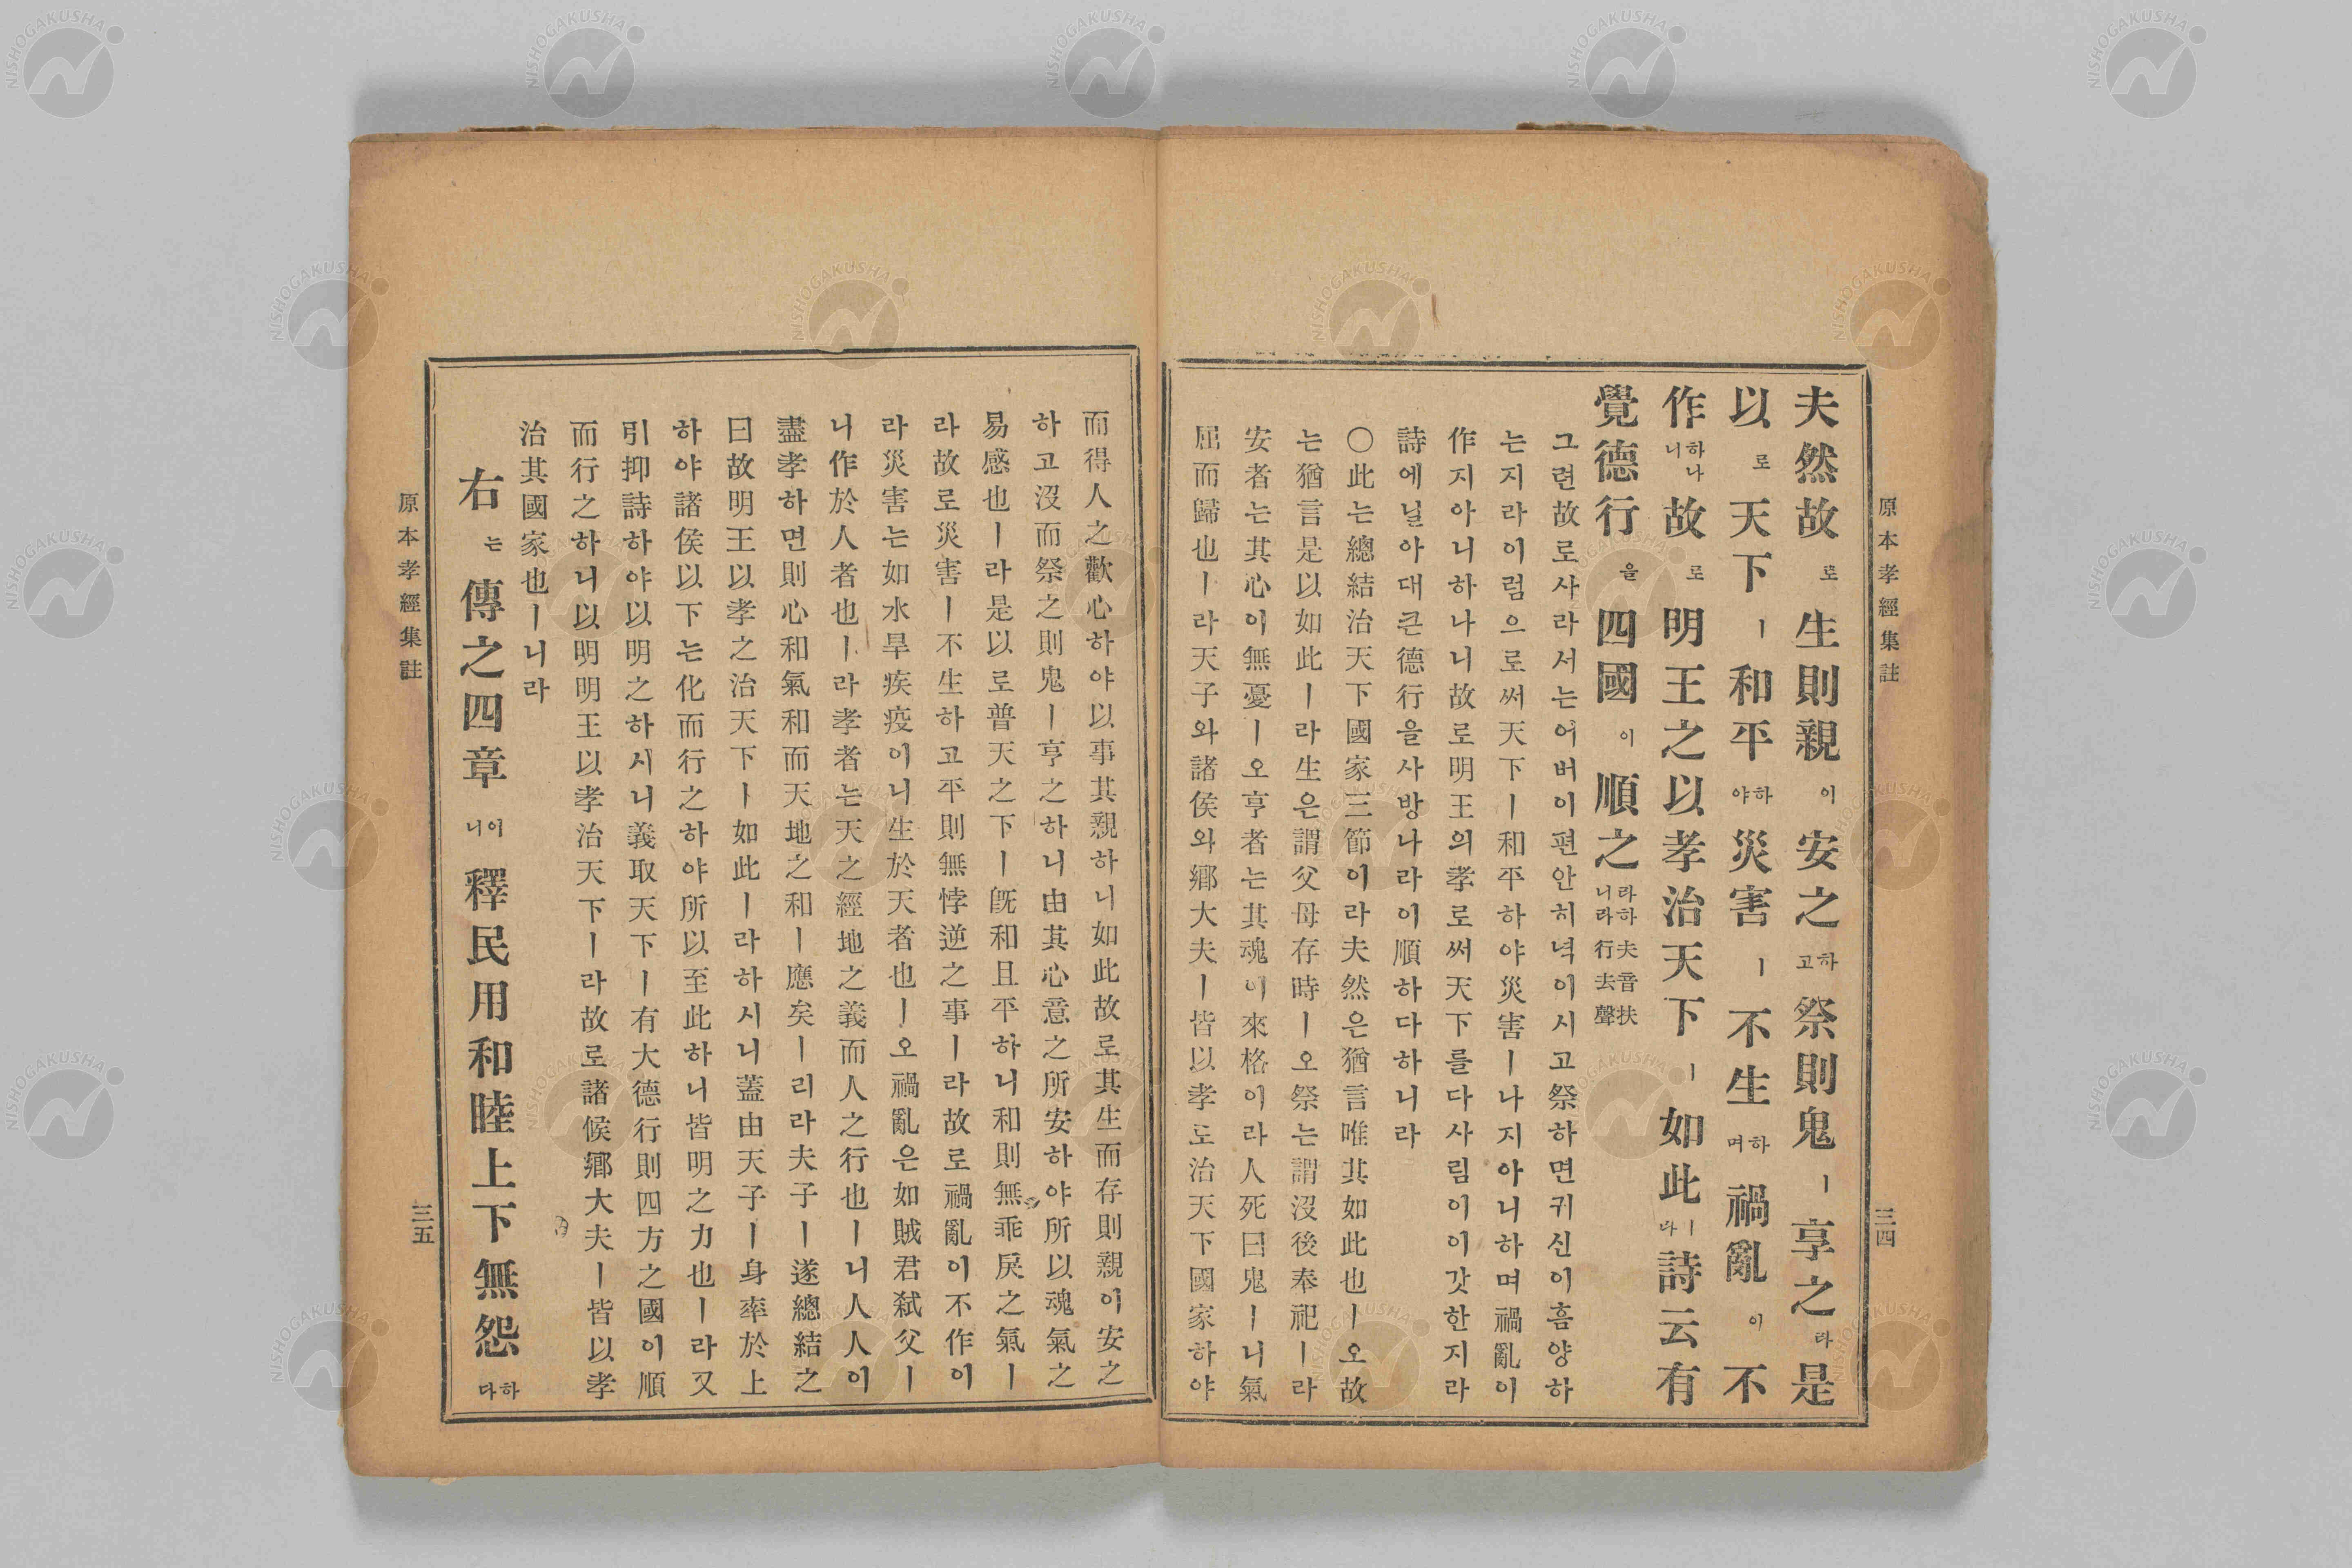 原本孝經集註
三四
夫然故로生則親이安之하고祭則鬼ㅣ享之라是
以로天下ㅣ和平하야災害ㅣ不生하며禍亂이不
作하나니故로明王之以孝治天下ㅣ如此ㅣ라詩云有
覺德行을四國이順之라하니라 夫音扶行去聲
그런故로사라서는어버이편안히녁이시고祭하면귀신이흠양하
는지라이럼으로써天下ㅣ和平하야災害ㅣ나지아니하며禍亂이
作지아니하나니故로明王의孝로써天下를다사림이이갓한지라
詩에닐아대큰德行을사방나라이順하다하니라
○此는總結治天下國家三節이라夫然은猶言唯其如此也ㅣ오故
는猶言是以如此ㅣ라生은謂父母存時ㅣ오祭는謂沒後奉祀ㅣ라
安者는其心이無憂ㅣ오亨者는其魂이來格이라人死曰鬼ㅣ니氣
屈而歸也ㅣ라天子와諸侯와鄕大夫ㅣ皆以孝도治天下國家하야
而得人之歡心하야以事其親하니如此故로其生而存則親이安之
하고沒而祭之則鬼ㅣ亨之하니由其心意之所安하야所以魂氣之
易感也ㅣ라是以로普天之下ㅣ旣和且平하니和則無乖戾之氣ㅣ
라故로災害ㅣ不生하고平則無悖逆之事ㅣ라故로禍亂이不作이
라災害는如水旱疾疫이니生於天者也ㅣ오禍亂은如賊君弑父ㅣ
니作於人者也ㅣ라孝者는天之經地之義而人之行也ㅣ니人人이
盡孝하면則心和氣和而天地之和ㅣ應矣ㅣ리라夫子ㅣ遂總結之
曰故明王以孝之治天下ㅣ如此ㅣ라하시니蓋由天子ㅣ身率於上
하야諸侯以下는化而行之하야所以至此하니皆明之力也ㅣ라又
引抑詩하야以明之하시니義取天下ㅣ有大德行則四方之國이順
而行之하니以明明王以孝治天下ㅣ라故로諸候鄕大夫ㅣ皆以孝
治其國家也ㅣ니라
右는傳之四章이니釋民用和睦上下無怨하다
原本孝經集註
三五
NISHOGAKUSHA